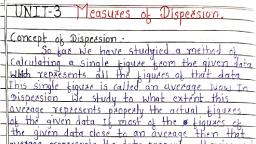 UNIT-3 Measures of Dispersion.
Concept of Dispersion :-
So far We have studyied a method of
calculating a single figure from the given data
which represents all the figures of that data
This single figure is called an average Now In
Dispersion We study to what extent this
average represents properly the actual figures
of the given data If most of the figures of
the given data close to an average then that